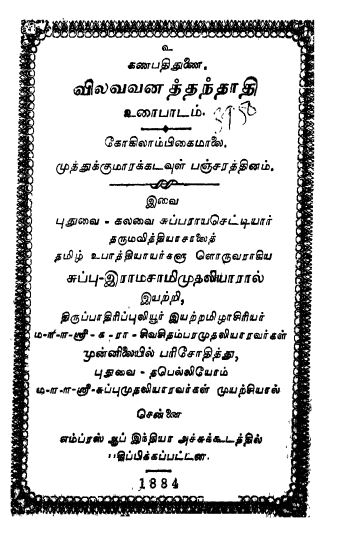 உ
கணபதிதுணை.
வில்வவன த்தந்தாதி
உரைபாடம்.
கோகிலாம்பிகைமாலை.
முத்துக்குமாரக்கடவுள் பஞ்சரத்தினம்.
இவை
புதுவை - கலவை சுப்பராயசெட்டியார்
தருமவித்தியாசாலைத்
தமிழ் உபாத்தியாயர்களு ளொருவராகிய
சுப்பு-இராமசாமிமுதலியாரால்
இயற்றி,
திருப்பாதிரிப்புலியூர் இயற்றமிழாசிரியர்
ம-ள-ள-ஸ்ரீ - சிவசிதம்பரமுதலியாரவர்கள்
முன்னிலையில் பரிசோதித்து,
புதுவை - தபெல்லியோம்
ம-ள-ள-ஸ்ரீ-சுப்புமுதலியாரவர்கள் முயற்சியால்
சென்னை
எம்பரஸ் ஆப் இந்தியா அச்சுக்கூடத்தில்
பதிப்பிக்கப்பட்டன.
1884